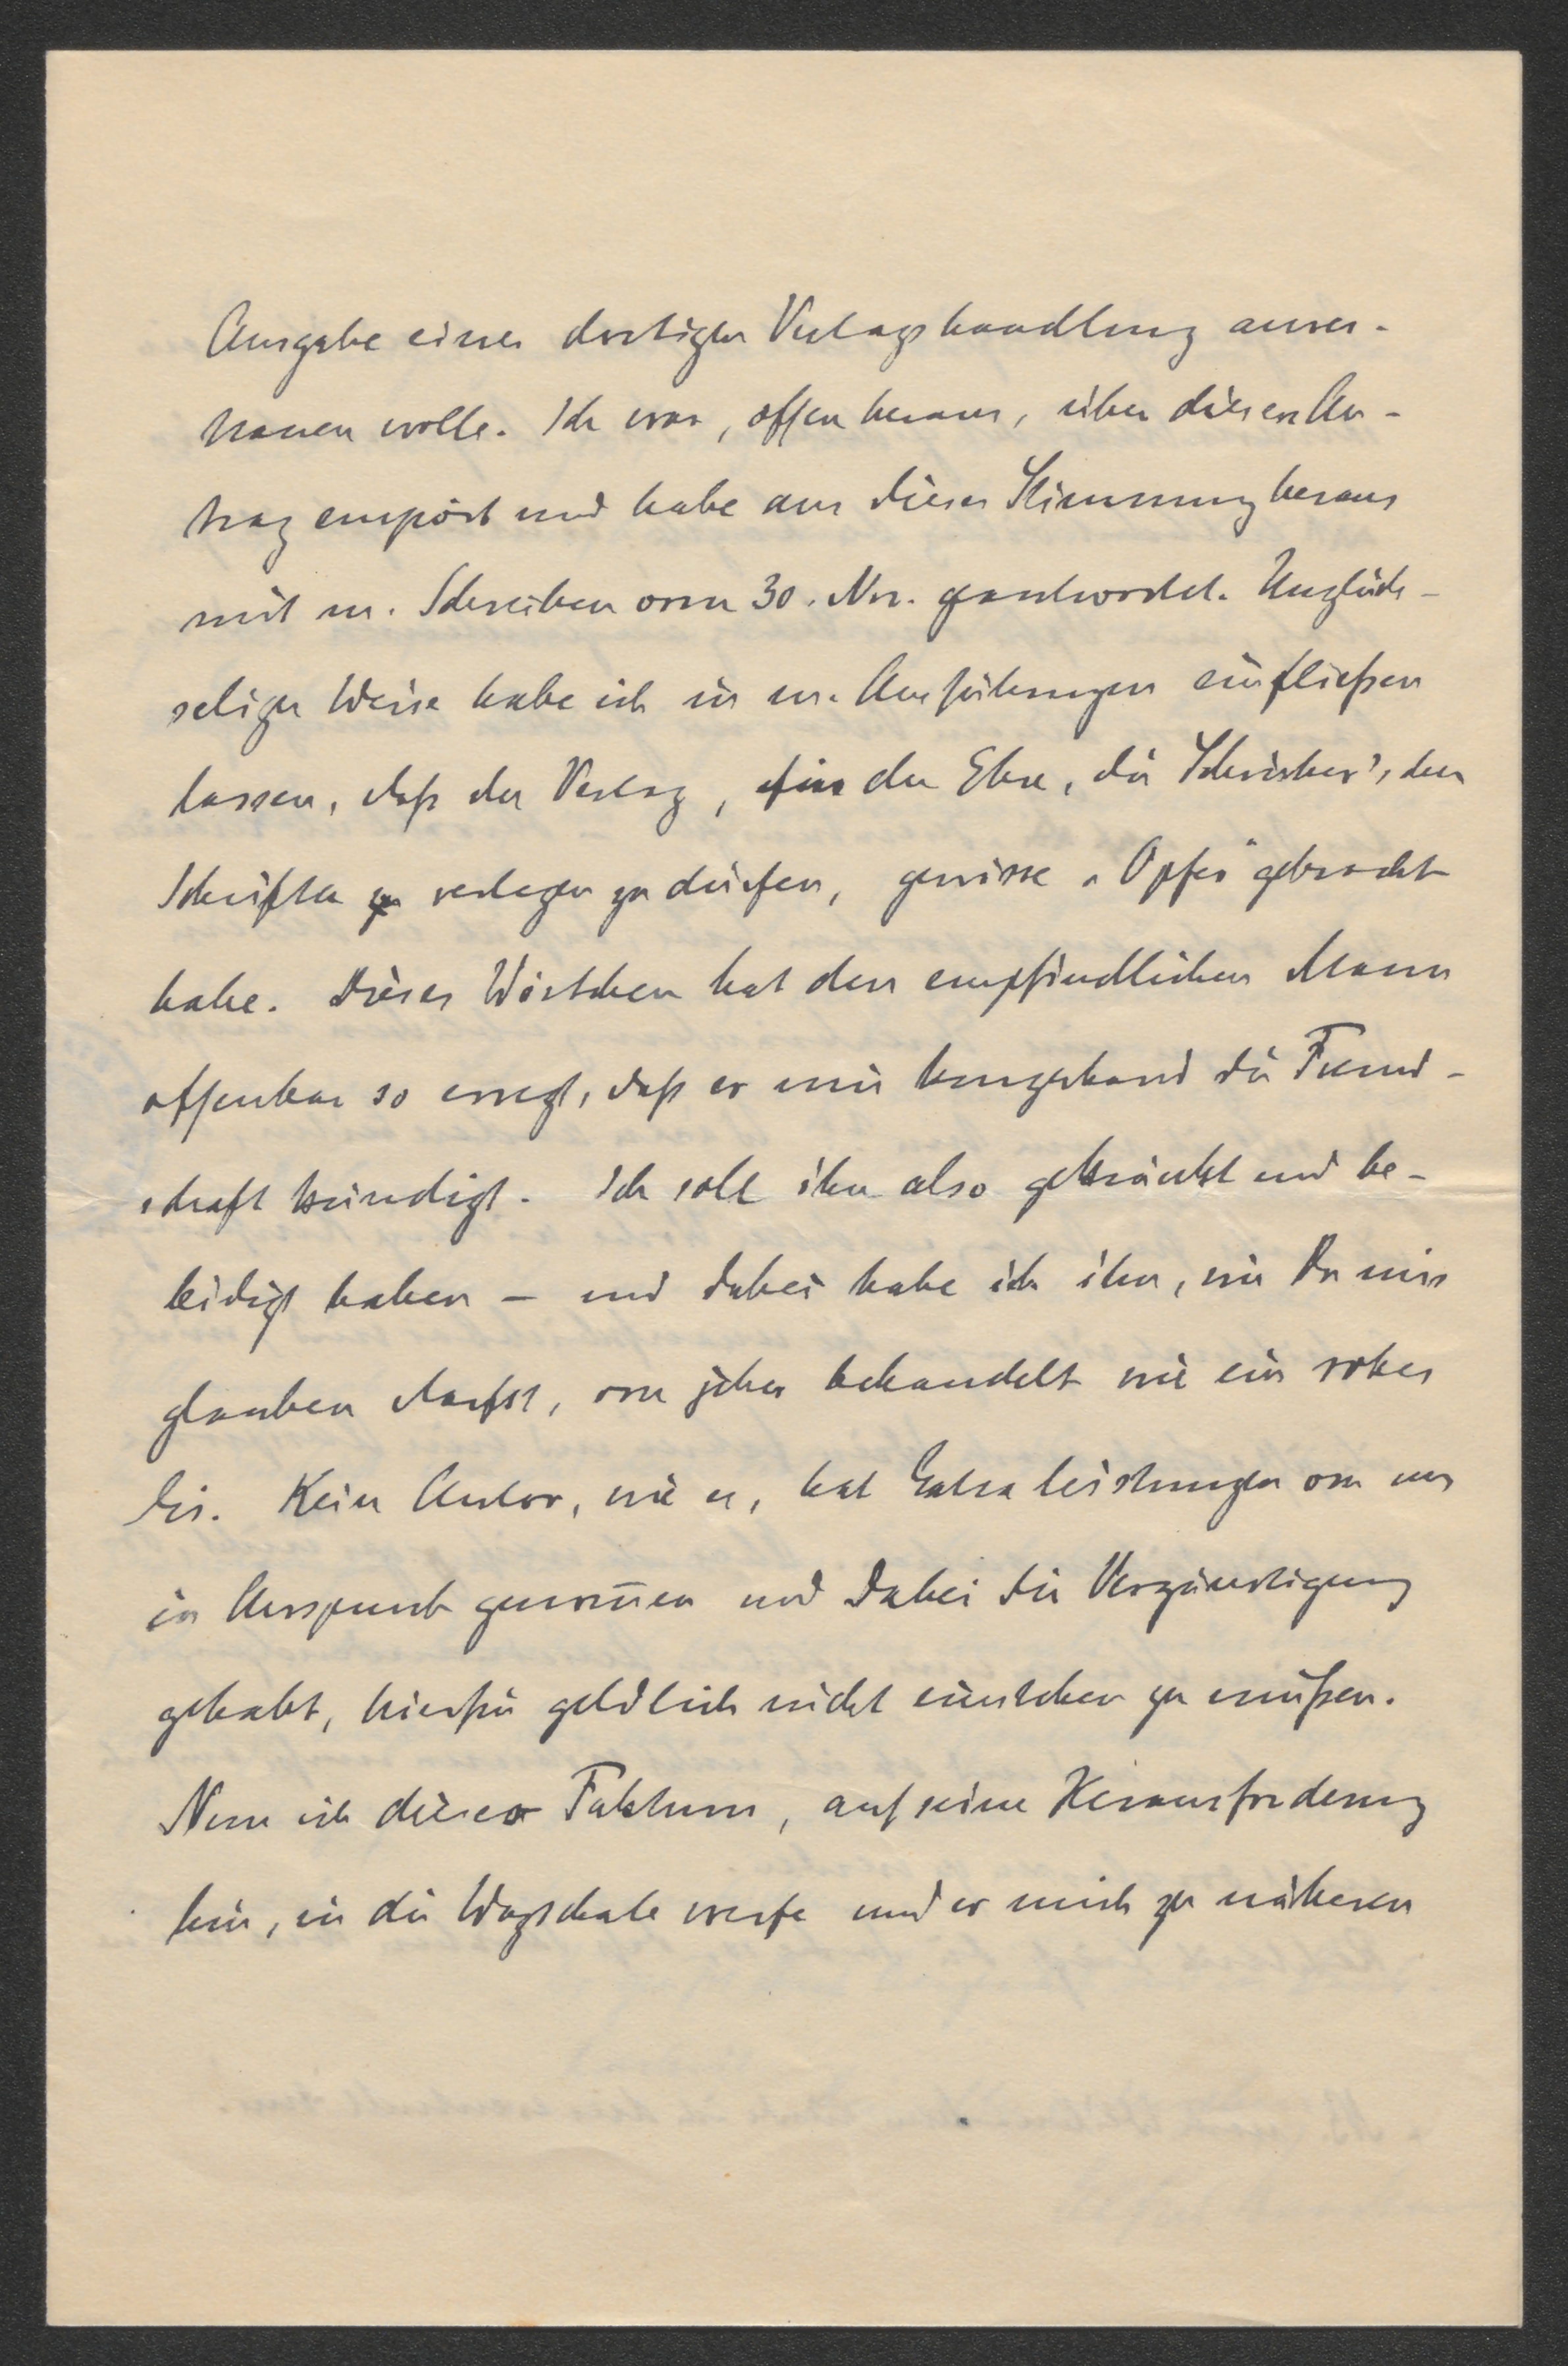 Ausgabe einer dortigen Verlagshandlung anver-
trauen wolle. Ich war, offen heraus, über diesen An-
trag empört und habe aus dieser Stimmung heraus
mit m. Schreiben vom 30. Nov. geantwortet. Unglück-
seliger Weise habe ich in m. Ausführungen einfließen
lassen, daß der Verlag, für die Ehre, die
Schriften verlegen zu dürfen, gewisse „Opfer" gebracht
habe. Dieses Wörtchen hat den empfindlichen Mann
offenbar so erregt, daß er mir kurzerhand die Freund-
schaft kündigt. Ich soll ihn also gekränkt und be-
leidigt haben – und dabei habe ich ihn, wie Du mir
glauben darfst, von jeher behandelt wie ein rohes
Ei. Kein Autor, wie er, hat Extraleistungen von uns
in Anspruch genom̅en und dabei die Vergünstigung
gehabt, hierfür geldlich nicht einstehen zu müßen.
Nun ich dieses Faktum, auf seine Herausforderung
hin, in die Wagschale werfe und er mich zu näheren